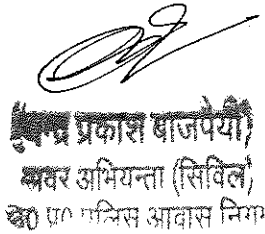 प्रकाश बाजपेयी)
अवर अभियन्ता (सिविल)
उ0 प्र0 पुलिस आवास निगम